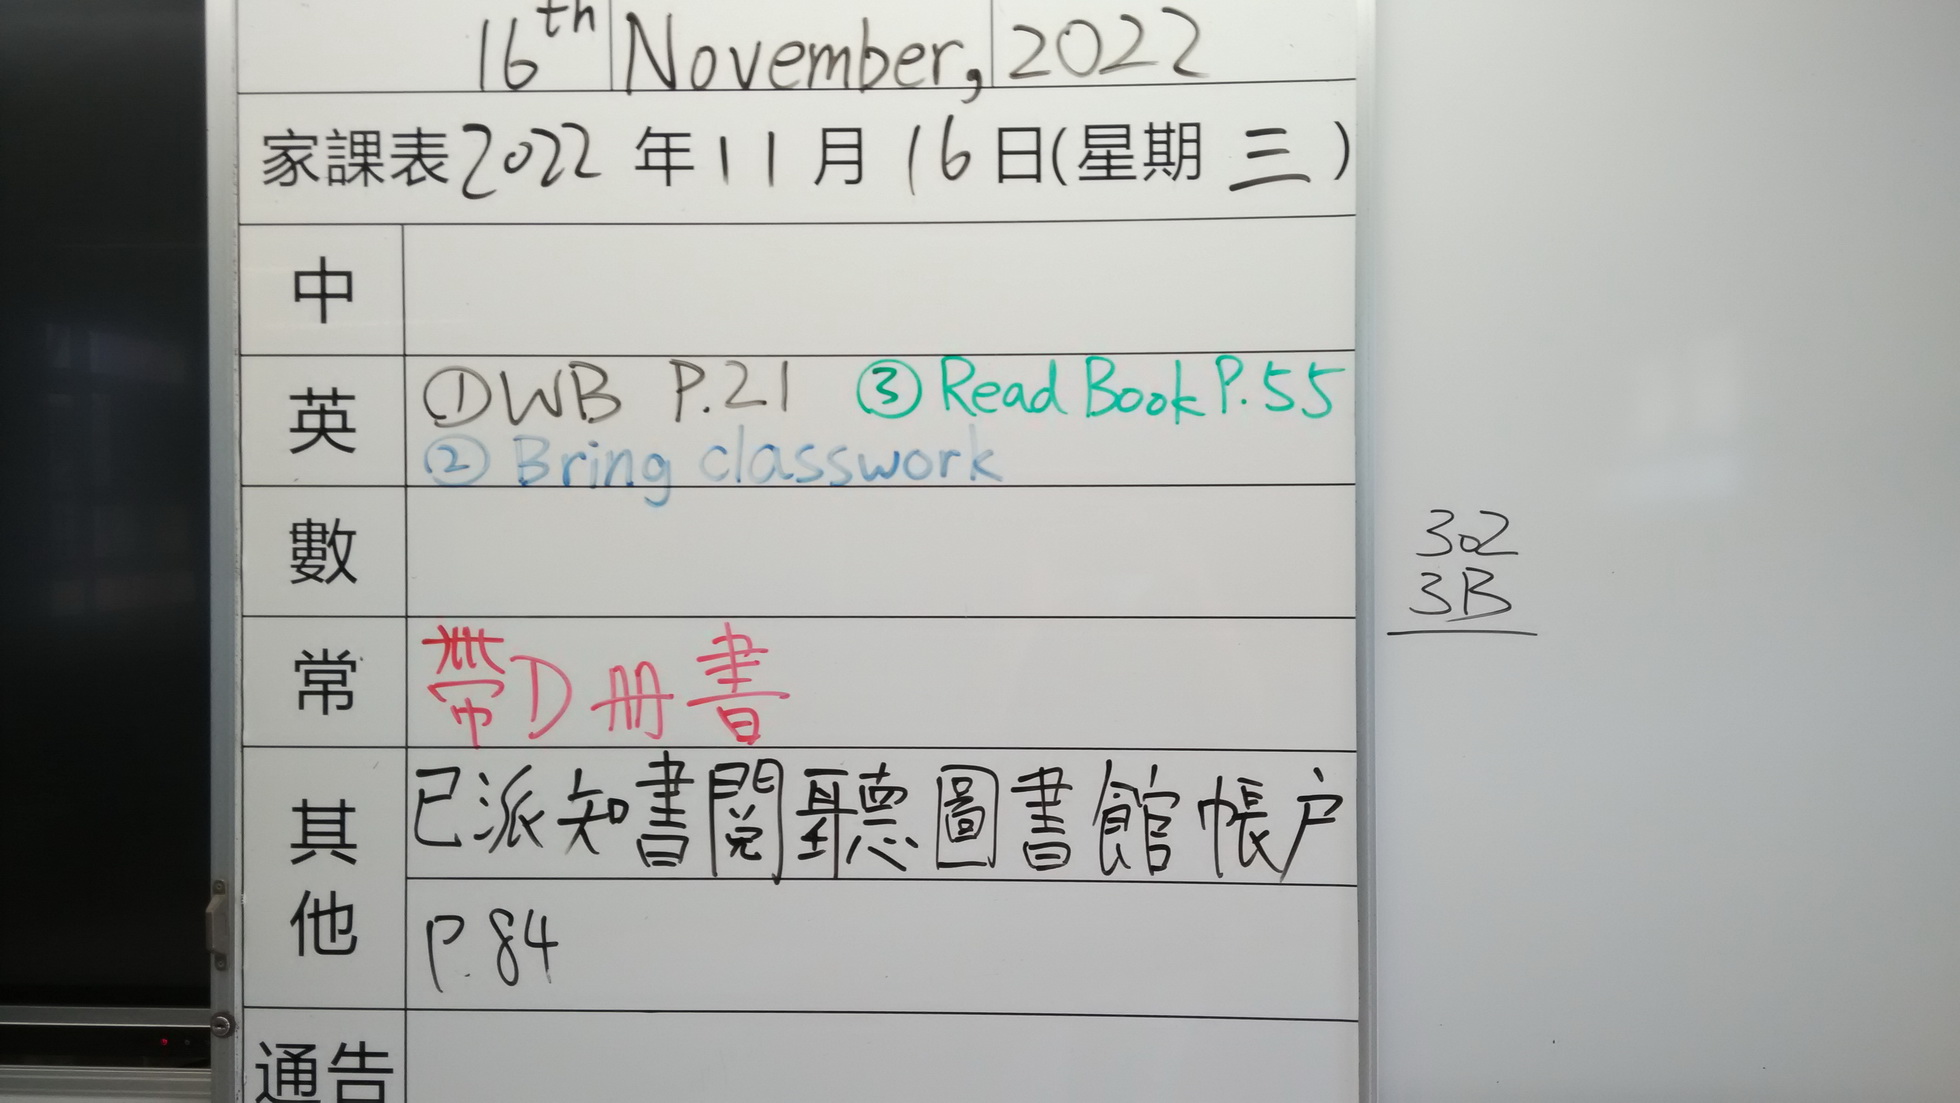 16th November, 2022
家課表 2022 年 11 月 16 日(星期 三)
中
英
①WB P.21 ③Read Book P.55
②Bring classwork
數
常
帶D冊書
其他
已派知書閱聽圖書館帳户
P.84
通告
302
3B